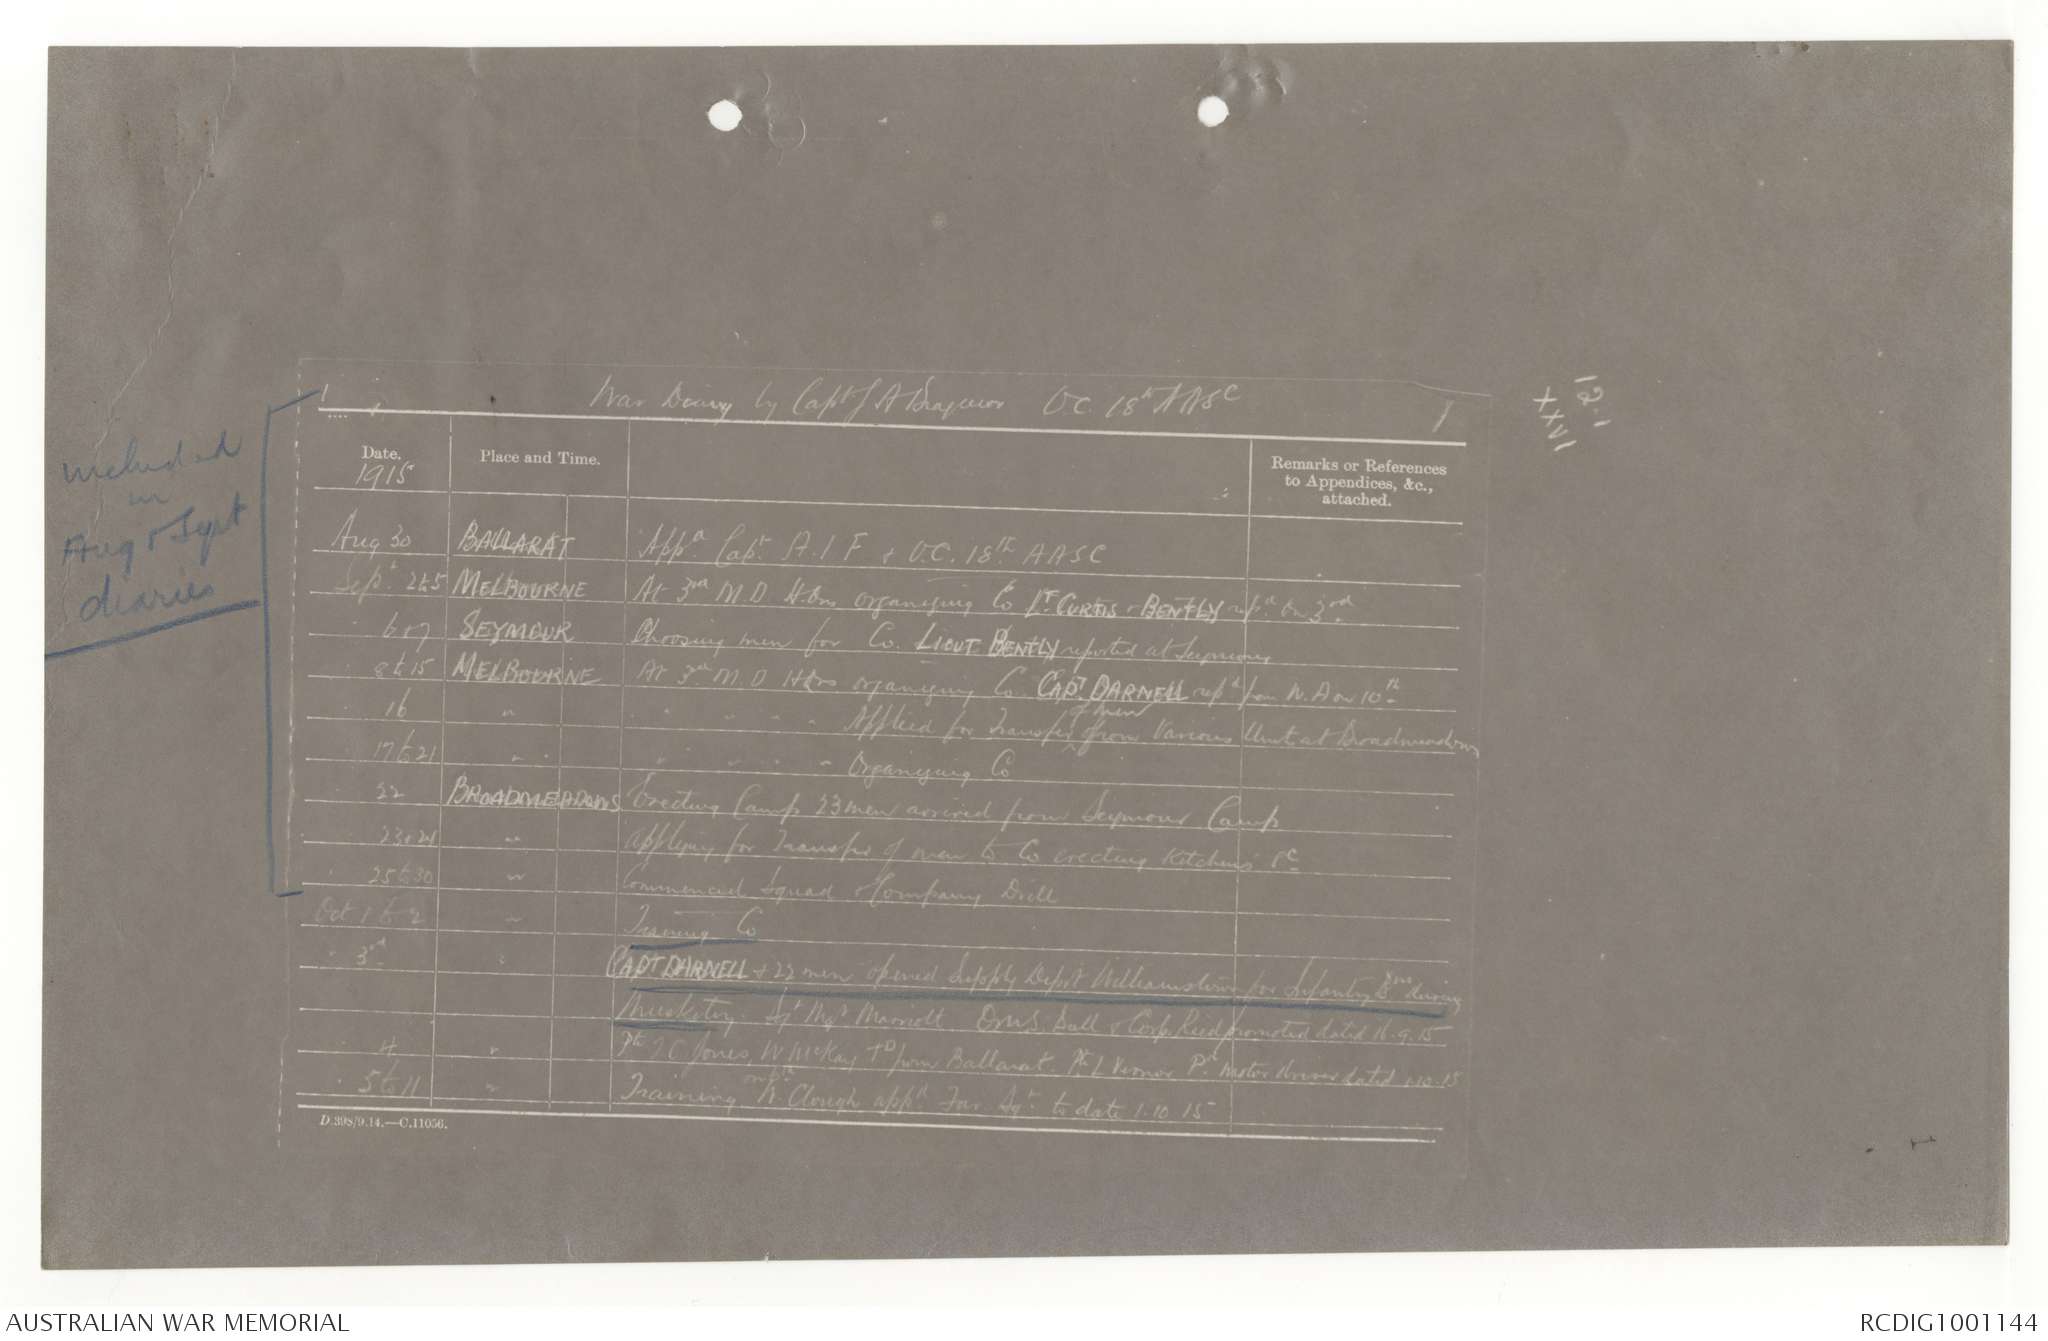 1
War Diary by Capt J A Dragwood O.C. 18th AASC
1
12.1
XXVI
included
in
Aug & Sept
diaries
Date.
1915
Place and Time.
Remarks or References
to Appendices, &c.,
attached.
Aug 30 BALLARAT Appd Capt. A.I.F & O.C. 18th AASC
Sept 2to5 MELBOURNE At 3rd M.D. Hdrs organising Co Lt. CURTIS & BENTLY repd. on 3rd.
6 & 7 SEYMOUR Choosing men for Co. LIEUT BENTLY reported at Seymour
8 to 15 MELBOURNE At 3rd M.D Hdrs organising Co CAPT. DARNELL repd from W.A on 10th
16 " " " " " Applied for Transfer of men from Various Units at Broadmeadows
17 to 21 " " " " " Organising Co
22 BROADMEADOWS Erecting Camp 23 men arrived from Seymour Camp
23 & 24 " Applying for Transfer of men to Co erecting Kitchens &c
25 to 30 " Commenced Squad & Company Drill
Oct 1 to 2 " Training Co
" 3rd " CAPT DARNELL & 22 men opened Supply Depot Williamstown for Infantry Bns during
Musketry. Sgt Mjr Marriott QMS. Ball & Corp. Reed promoted dated 16.9.15
4 " Pte J C Jones, W McKay TD from Ballarat. Pte L Vernor Pd. motor driver dated 1.10.15
5 to 11 " Training N. Clough appd Far Sgt to date 1.10.15
D.398/9.14.—C.11056.
AUSTRALIAN WAR MEMORIAL
RCDIG1001144